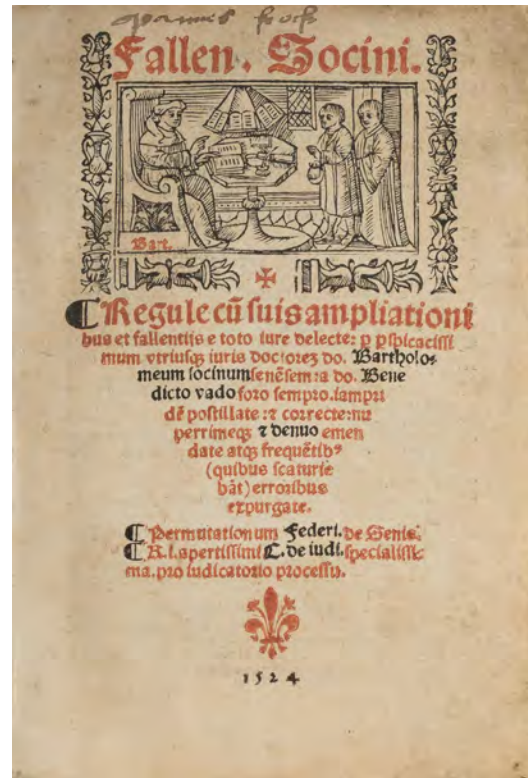 Fallen. Socini.
Bart.
¶ Regule cũ suis ampliationi
bus et fallentijs e toto iure delecte: p pspicacissi
mum vtriusq; iuris doctorez do. Bartholo-
meum socinum senẽsem: a do. Bene
dicto vado foro sempro. iampri
dẽ postillate: ⁊ correcte: nu
perrimeq; ⁊ denuo emen
date atq; frequẽtibꝰ
(quibus scaturie
bãt) erroribus
expurgate.
¶ Permutationum Federi. de Senis.
¶ R. l. apertissimi C. de iudi. specialissi-
ma. pro iudicatorio processu.
1524